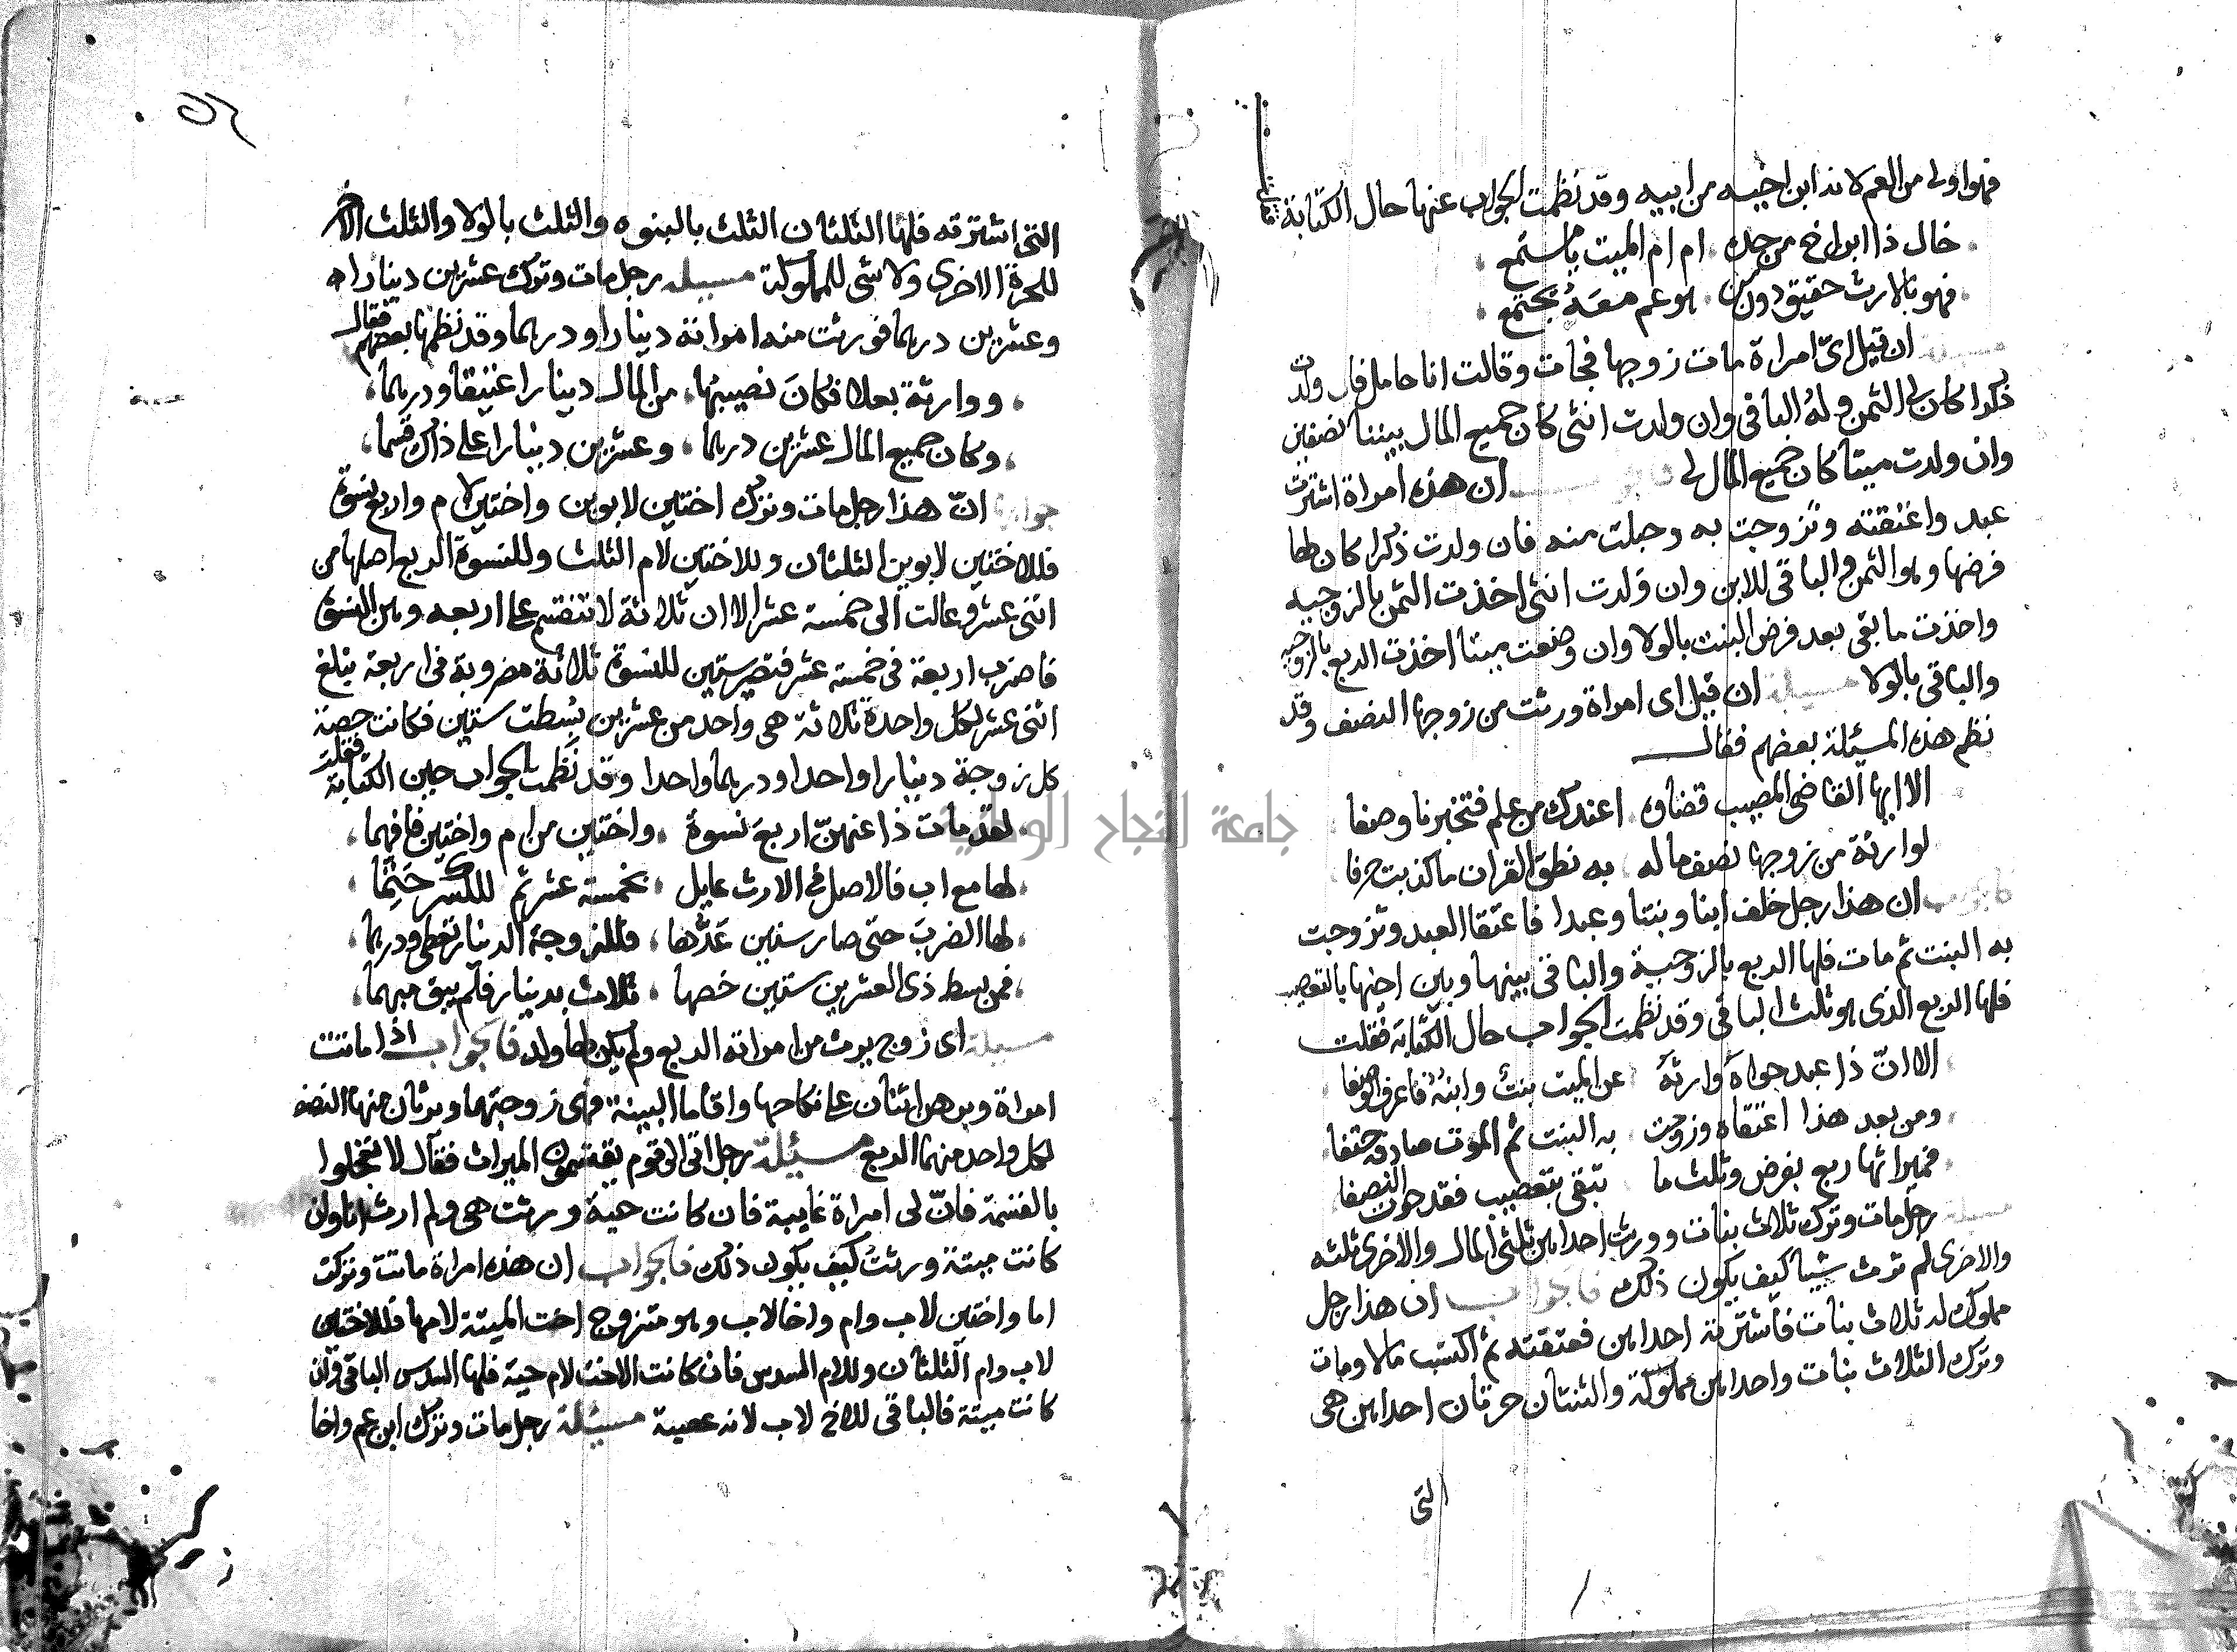 فهو اولى من العم لانه ابن اخيه من ابيه وقد نظمت الجواب عنها حال الكتابة فقلت
خال ذا ابن اخ من جده ام ام الميت يا مستمع
فهو بالارث حقيق دون من هو عم معه يجتمع
مسئلة ان قيل اي امراة مات زوجها فجات وقالت انا حامل فان ولدت
ذكرا كان لي الثمن وله الباقي وان ولدت انثى كان جميع المال بيننا نصفين
وان ولدت ميتا كان جميع المال لي فالجواب ان هذه امراة اشترت
عبد واعتقته وتزوجت به وحبلت منه فان ولدت ذكرا كان لها
فرضها وهو الثمن والباقي للابن وان ولدت انثى اخذت الثمن بالزوجيه
واخذت ما بقى بعد فرض البنت بالولا وان وضعت ميتا اخذت الربع بالزوجيه
والباقي بالولا مسيلة ان قيل اى امراة ورثت من زوجها النصف وقد
نظم هذه المسئلة بعضهم فقال
الا ايها القاضي المصيب قضاؤه اعندك من علم فتخبرنا وصفا
لوارثة من زوجها نصف ماله به نطق القران ما كذبت حرفا
فالجواب ان هذا رجل خلف ابنا وبنتا وعبدا فاعتقا العبد وتزوجت
به البنت ثم مات فلها الربع بالزوجية والباقي بينها وبين اخيها بالتعصيب
فلها الربع الذي هو ثلث الباقي وقد نظمت الجواب حال الكتابة فقلت
الا ان ذا عبد حواه وارثه عن الميت بنت وابنه فاعرف الوصفا
ومن بعد هذا اعتقاه وزوجت به البنت ثم الموت صادفه حتفا
فميراثها ربع بفرض وثلث ما تبقى بتعصيب فقد حوت النصفا
مسئلة رجل مات وترك ثلاث بنات وورث احداهن ثلثي المال والاخرى ثلثه
والاخرى لم ترث شيا كيف يكون ذلك فالجواب ان هذا رجل
مملوك له ثلاث بنات فاشترته احداهن فعتقته ثم اكتسب مالا ومات
وترك الثلاث بنات واحداهن مملوكة والثنتان حرتان احداهن هي
التي
التي اشترته فلها الثلثان الثلث بالبنوه والثلث بالولا والثلث الاخر
للحرة الاخرى ولا شى للمملوكة مسيله رجل مات وترك عشرين دينارا
وعشرين درهما فورثت منه امراته دينارا ودرهما وقد نظمها بعضهم فقال
ووارثة بعلا فكان نصيبها من المال دينارا عتيقا ودرهما
وكان جميع المال عشرين درهما وعشرين دينارا على ذاك قسما
جوابها ان هذا رجل مات وترك اختين لابوين واختين لام واربع نسوة
فللاختين لابوين الثلثان وللاختين لام الثلث وللنسوة الربع اصلها من
اثنى عشر وعالت الى خمسة عشر الا ان ثلاثة لا تنقسم على اربعه وهن النسوة
فاضرب اربعة في خمسة عشر فتصير ستين للنسوة ثلاثة مضروبة في اربعة يبلغ
اثني عشر لكل واحدة ثلاثة هي واحد من عشرين بسطت ستين فكانت حصة
كل زوجة دينارا واحدا ودرهما واحدا وقد نظمت الجواب حين الكتابة فقلت
لقد مات ذا عنهن اربع نسوة واختين من ام واختين فافهما
لها مع اب فالاصل في الارث عايل بخمسة عشر ثم للكسر حتما
لها الضرب حتى صار ستين عدها فللزوجة الدينار تعطى ودرهما
فمن بسط ذي العشرين ستين خصها ثلاث بدينار فلم يبق مبهما
مسيلة اى زوج يرث من امراته الربع ولم يكن لها ولد فالجواب اذا ماتت
امراة وبرهن اثنان على نكاحها واقاما البينة فهي زوجتهما ويرثان منها النصف
لكل واحد منهما الربع مسيئلة رجل اتى الى قوم يقتسمون الميراث فقال لا تعجلوا
بالقسمة فان لي امراة غايبة فان كانت حية ورثت هي ولم ارث انا وان
كانت ميتة ورثت كيف يكون ذلك فالجواب ان هذه امراة ماتت وتركت
اما واختين لاب وام واخا لاب وهو متزوج اخت الميتة لامها فللاختين
لاب وام الثلثان وللام السدس فان كانت الاخت لام حية فلها السدس الباقي وان
كانت ميتة فالباقي للاخ لاب لانه عصبة مسيئلة رجل مات وترك ابن عم واخا
جامعة النجاح الوطنية